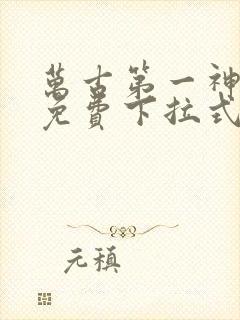 萬古第一神
免費下拉式
元稹